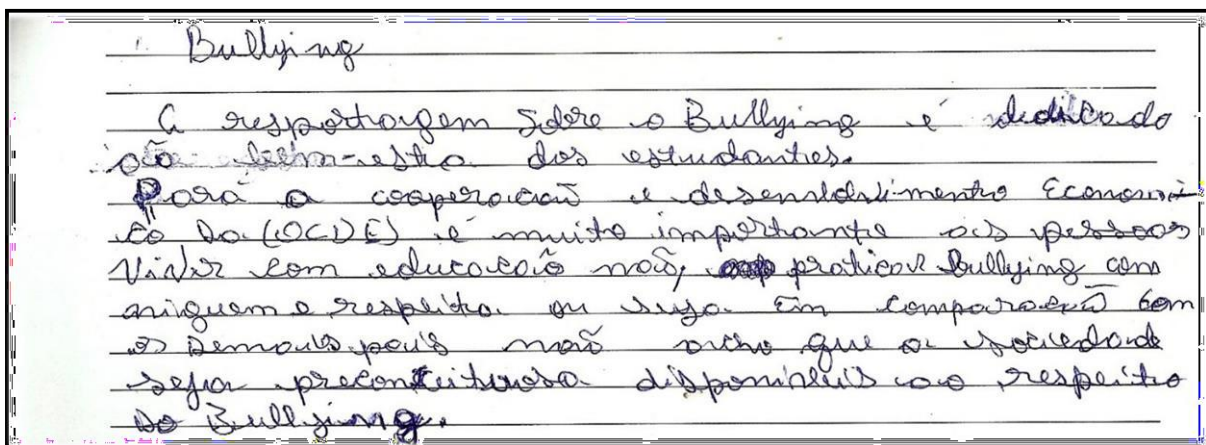 Bullying
A resportagem Sobre o Bullying é dedicado
ao bem-estra dos estudantes.
Para a cooperacaõ e desenvolvimento Economi
co Do (OCDE) é muito importante as pessoas
Viver com educacaõ naõ, praticar bullying com
ninguem e respeito. ou seja Em comparacaõ com
os Demais pais naõ acho que a sociedade
seja preconceituosa disponivéis ao respeito
do Bullying.